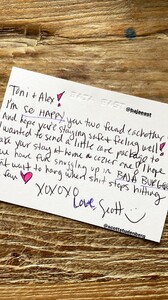 @bajaeast
Toni + Alex!
I'm SO HAPPY you two fiend eachother
and hope you're staying safe + feeling well! I
wanted to send a little care package to
make your stay at home a cozier one! I hope
you have fun snuggling up in BAJA
want to hang when shit stops hitting
fan
XOXOXO
Love,
Scott
@scottstudenberg